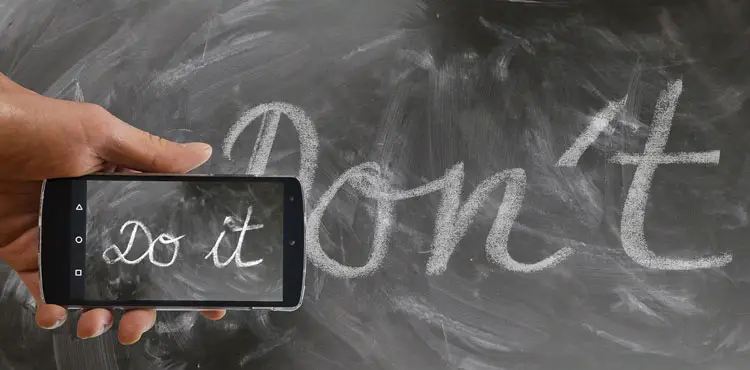 Don't
Do it